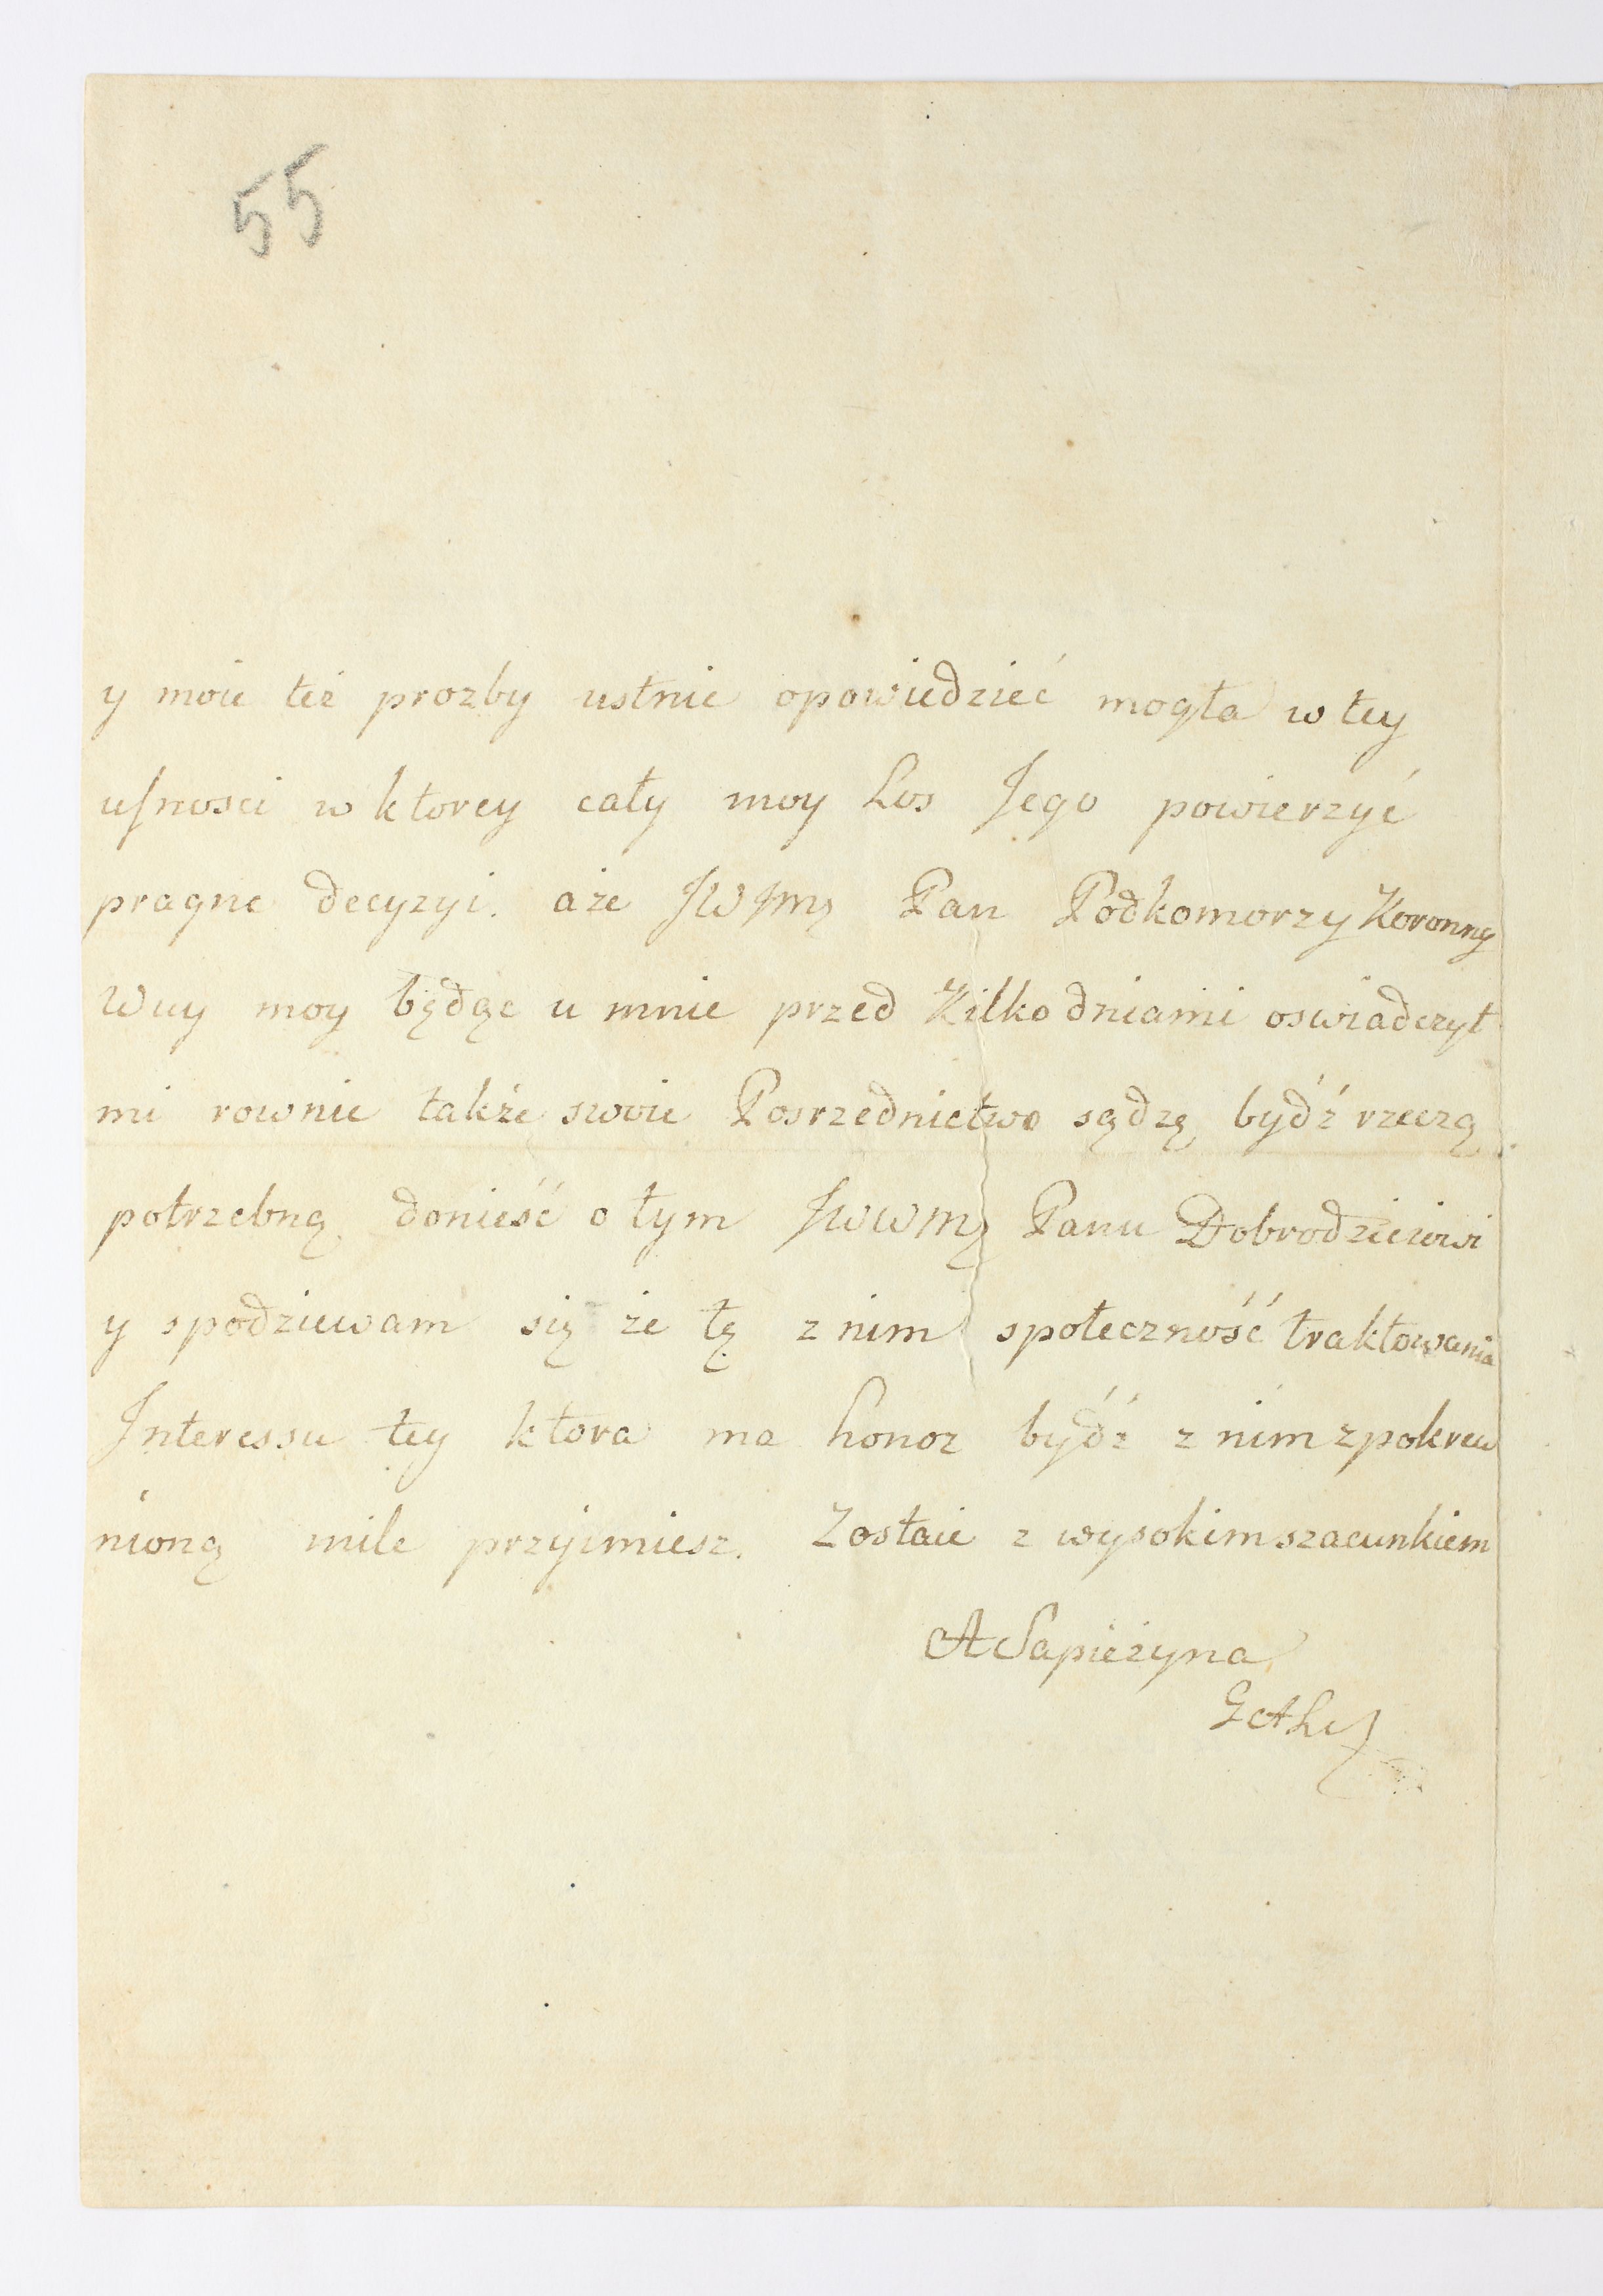 55
y moie też prozby ustnie opowiedzieć mogła w tey
ufnosci w ktorey cały moy Los Jego powierzyć
pragnę decyzyi. aże JWJmę Pan Podkomorzy Koronny
Wuy moy będąc u mnie przed Kilko dniami oswiadczył
mi rownie także swoie Posrzednictwo sądzę bydź rzeczą
potrzebną donieść o tym JWWMę Panu Dobrodzieiowi
y spodziewam się że tę z nim społeczność traktowania
Interessu tey ktora ma honor bydź z nim zpokrew
nioną mile przyimiesz. Zostaie z wysokim szacunkiem
A Sapieżyna